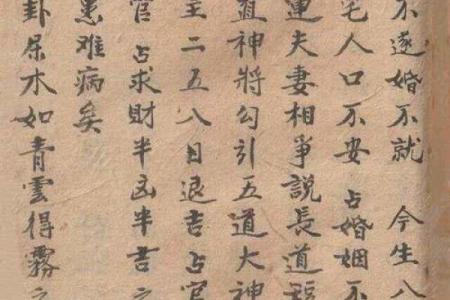 不遂婚不就 今生八
宅人口不安占婚姻不
連夫妻相爭説長道短
直神將勾引五道大神
主二五八日退吉占官
官占求財半凶半吉之
患难病矣
卦屎木如青雲得霧之